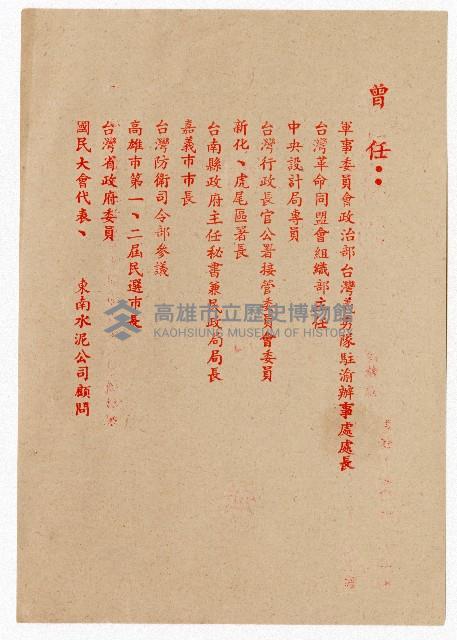 曾任：
軍事委員會政治部台灣義勇隊駐渝辦事處處長
台灣革命同盟會組織部主任
中央設計局專員
台灣行政長官公署接管委員會委員
新化、虎尾區署長
台南縣政府主任秘書兼民政局局長
嘉義市市長
台灣防衛司令部參議
高雄市第一、二屆民選市長
台灣省政府委員
國民大會代表、東南水泥公司顧問
高雄市立歷史博物館
KAOHSIUNG MUSEUM OF HISTORY